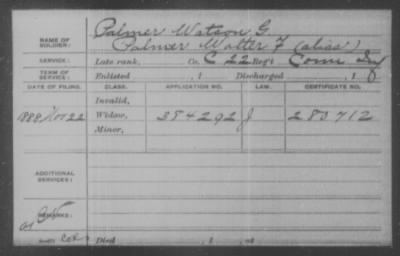 Palmer Watson G.
NAME OF SOLDIER: Palmer Walter F (alias)
SERVICE: Late rank, Co. C 22 Reg't Conn Inf
TERM OF SERVICE: Enlisted , 1 Discharged , 1
DATE OF FILING. CLASS. APPLICATION NO. LAW. CERTIFICATE NO.
Invalid,
1888 Nov 22 Widow, 384292 J 280712
Minor,
ADDITIONAL SERVICES:
REMARKS:
Died , 1 , at